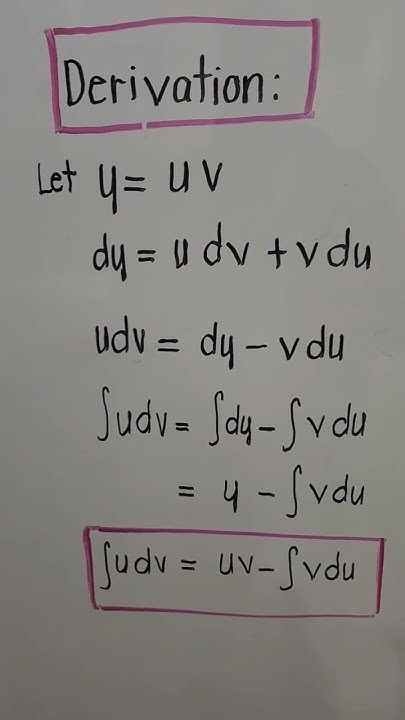 Derivation:
Let y = uv
dy = u dv + v du
udv = dy - vdu
∫udv = ∫dy - ∫vdu
= y - ∫vdu
∫udv = uv - ∫vdu